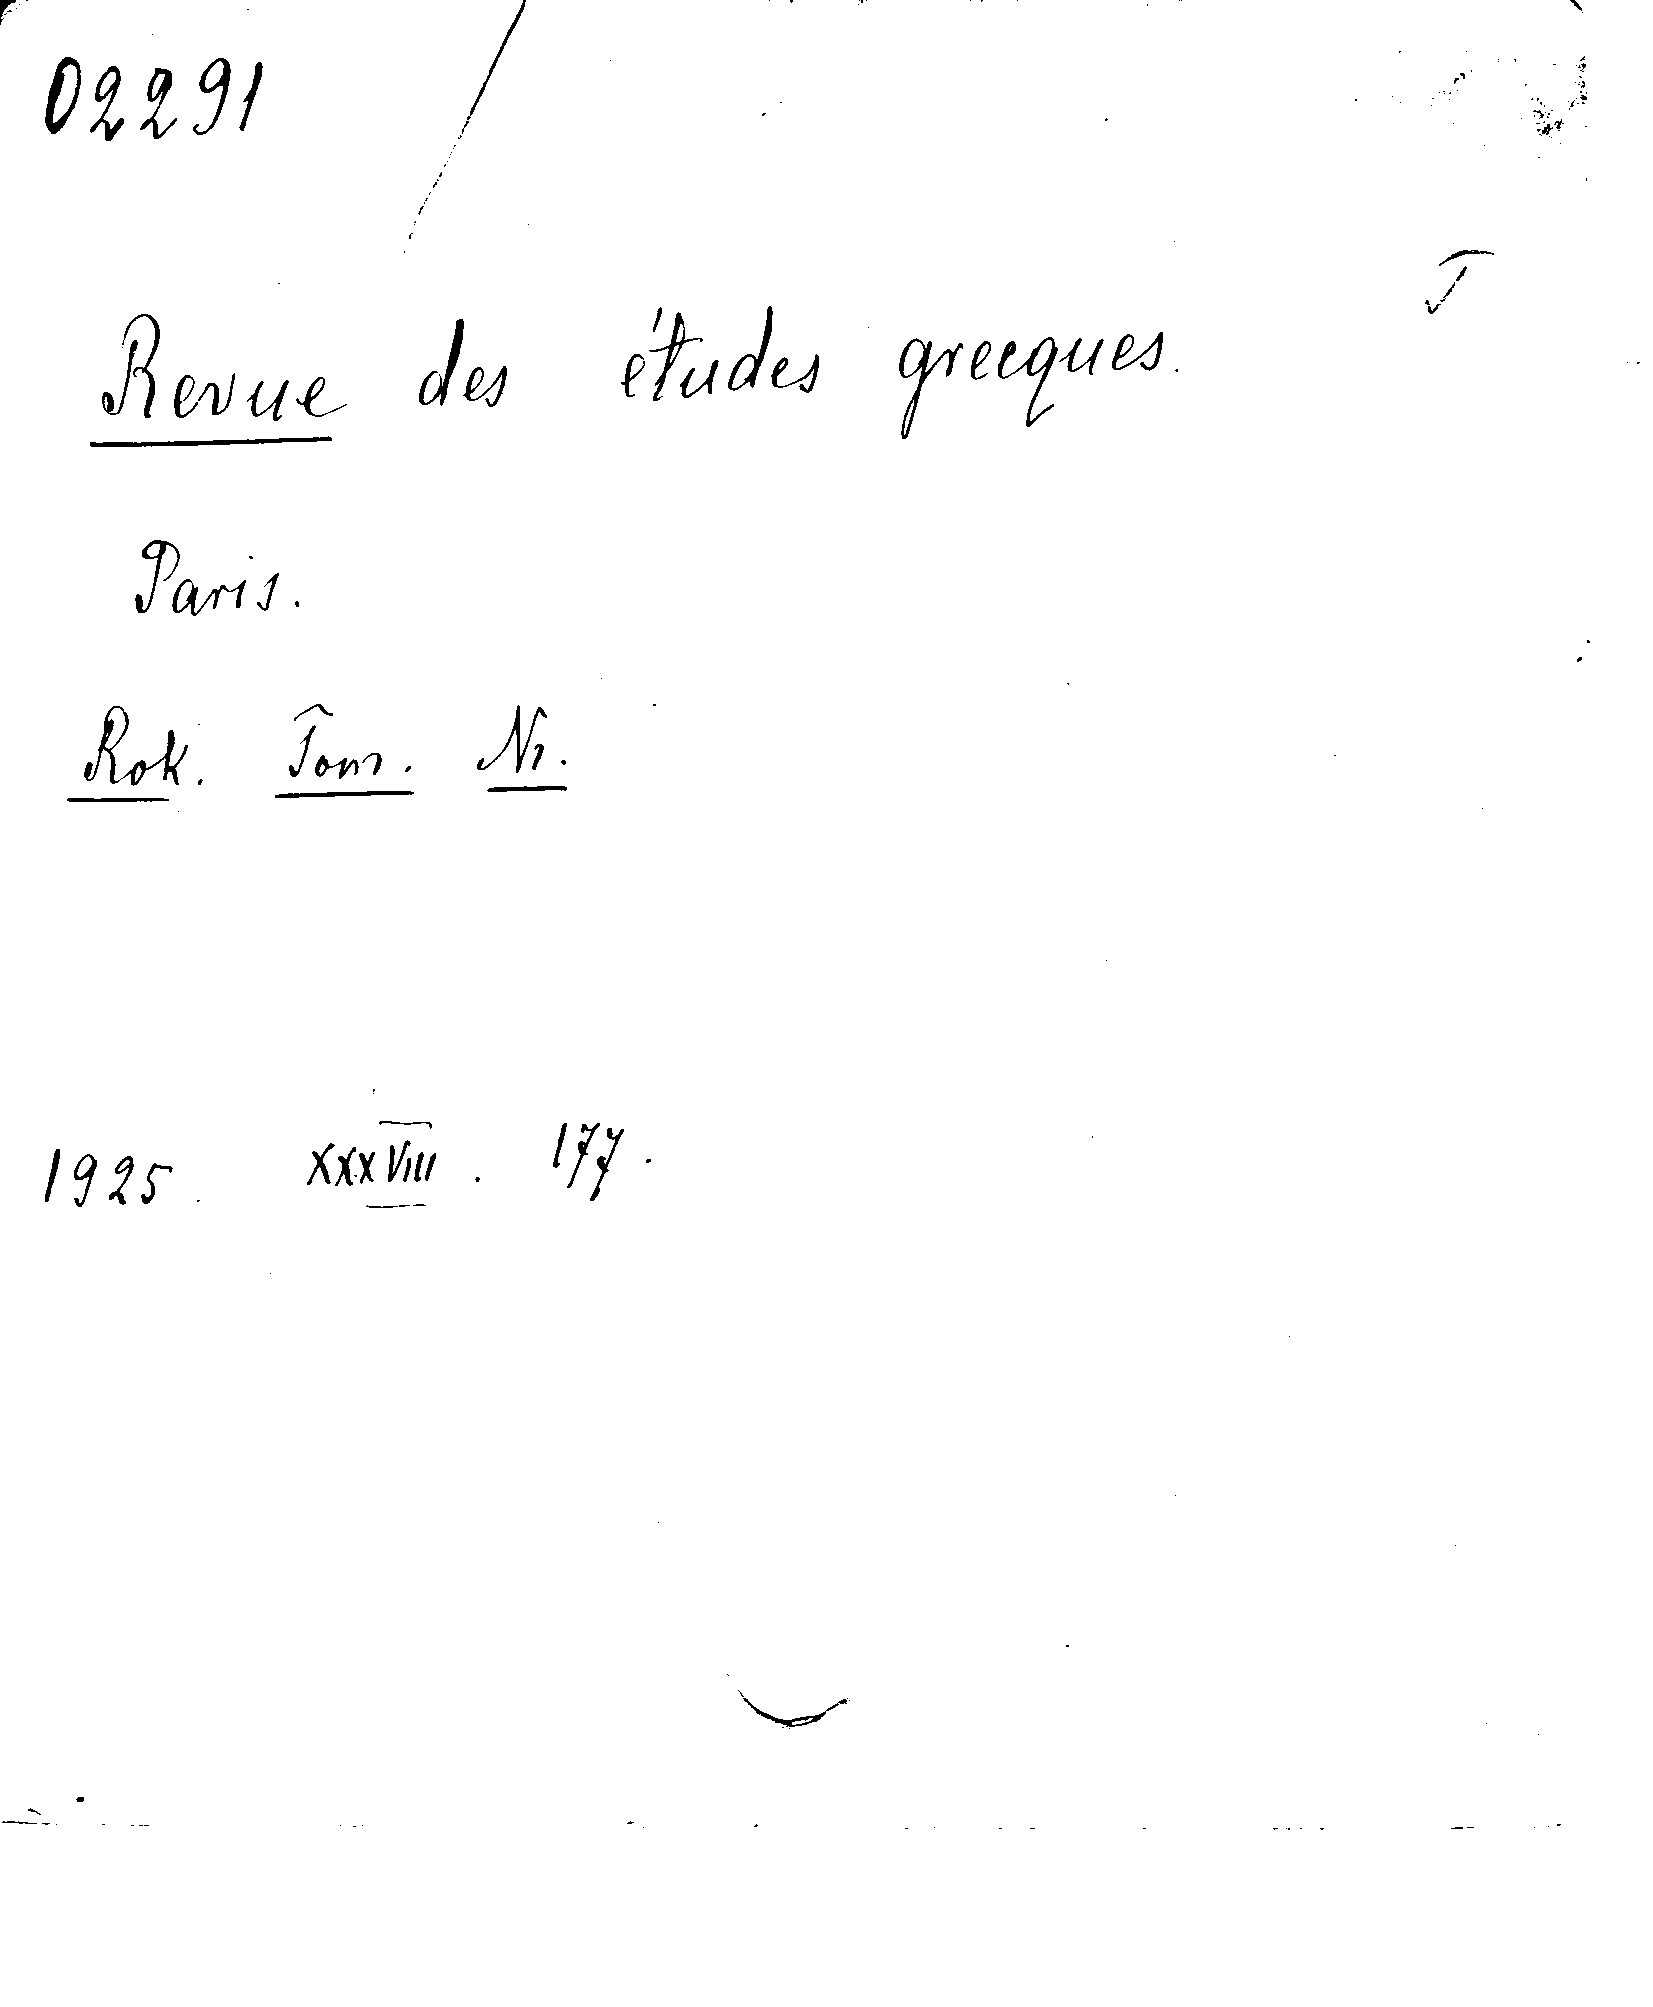 02291
J
Revue des études grecques.
Paris.
Rok. Tom. Nr.
1925. XXXVIII. 177.